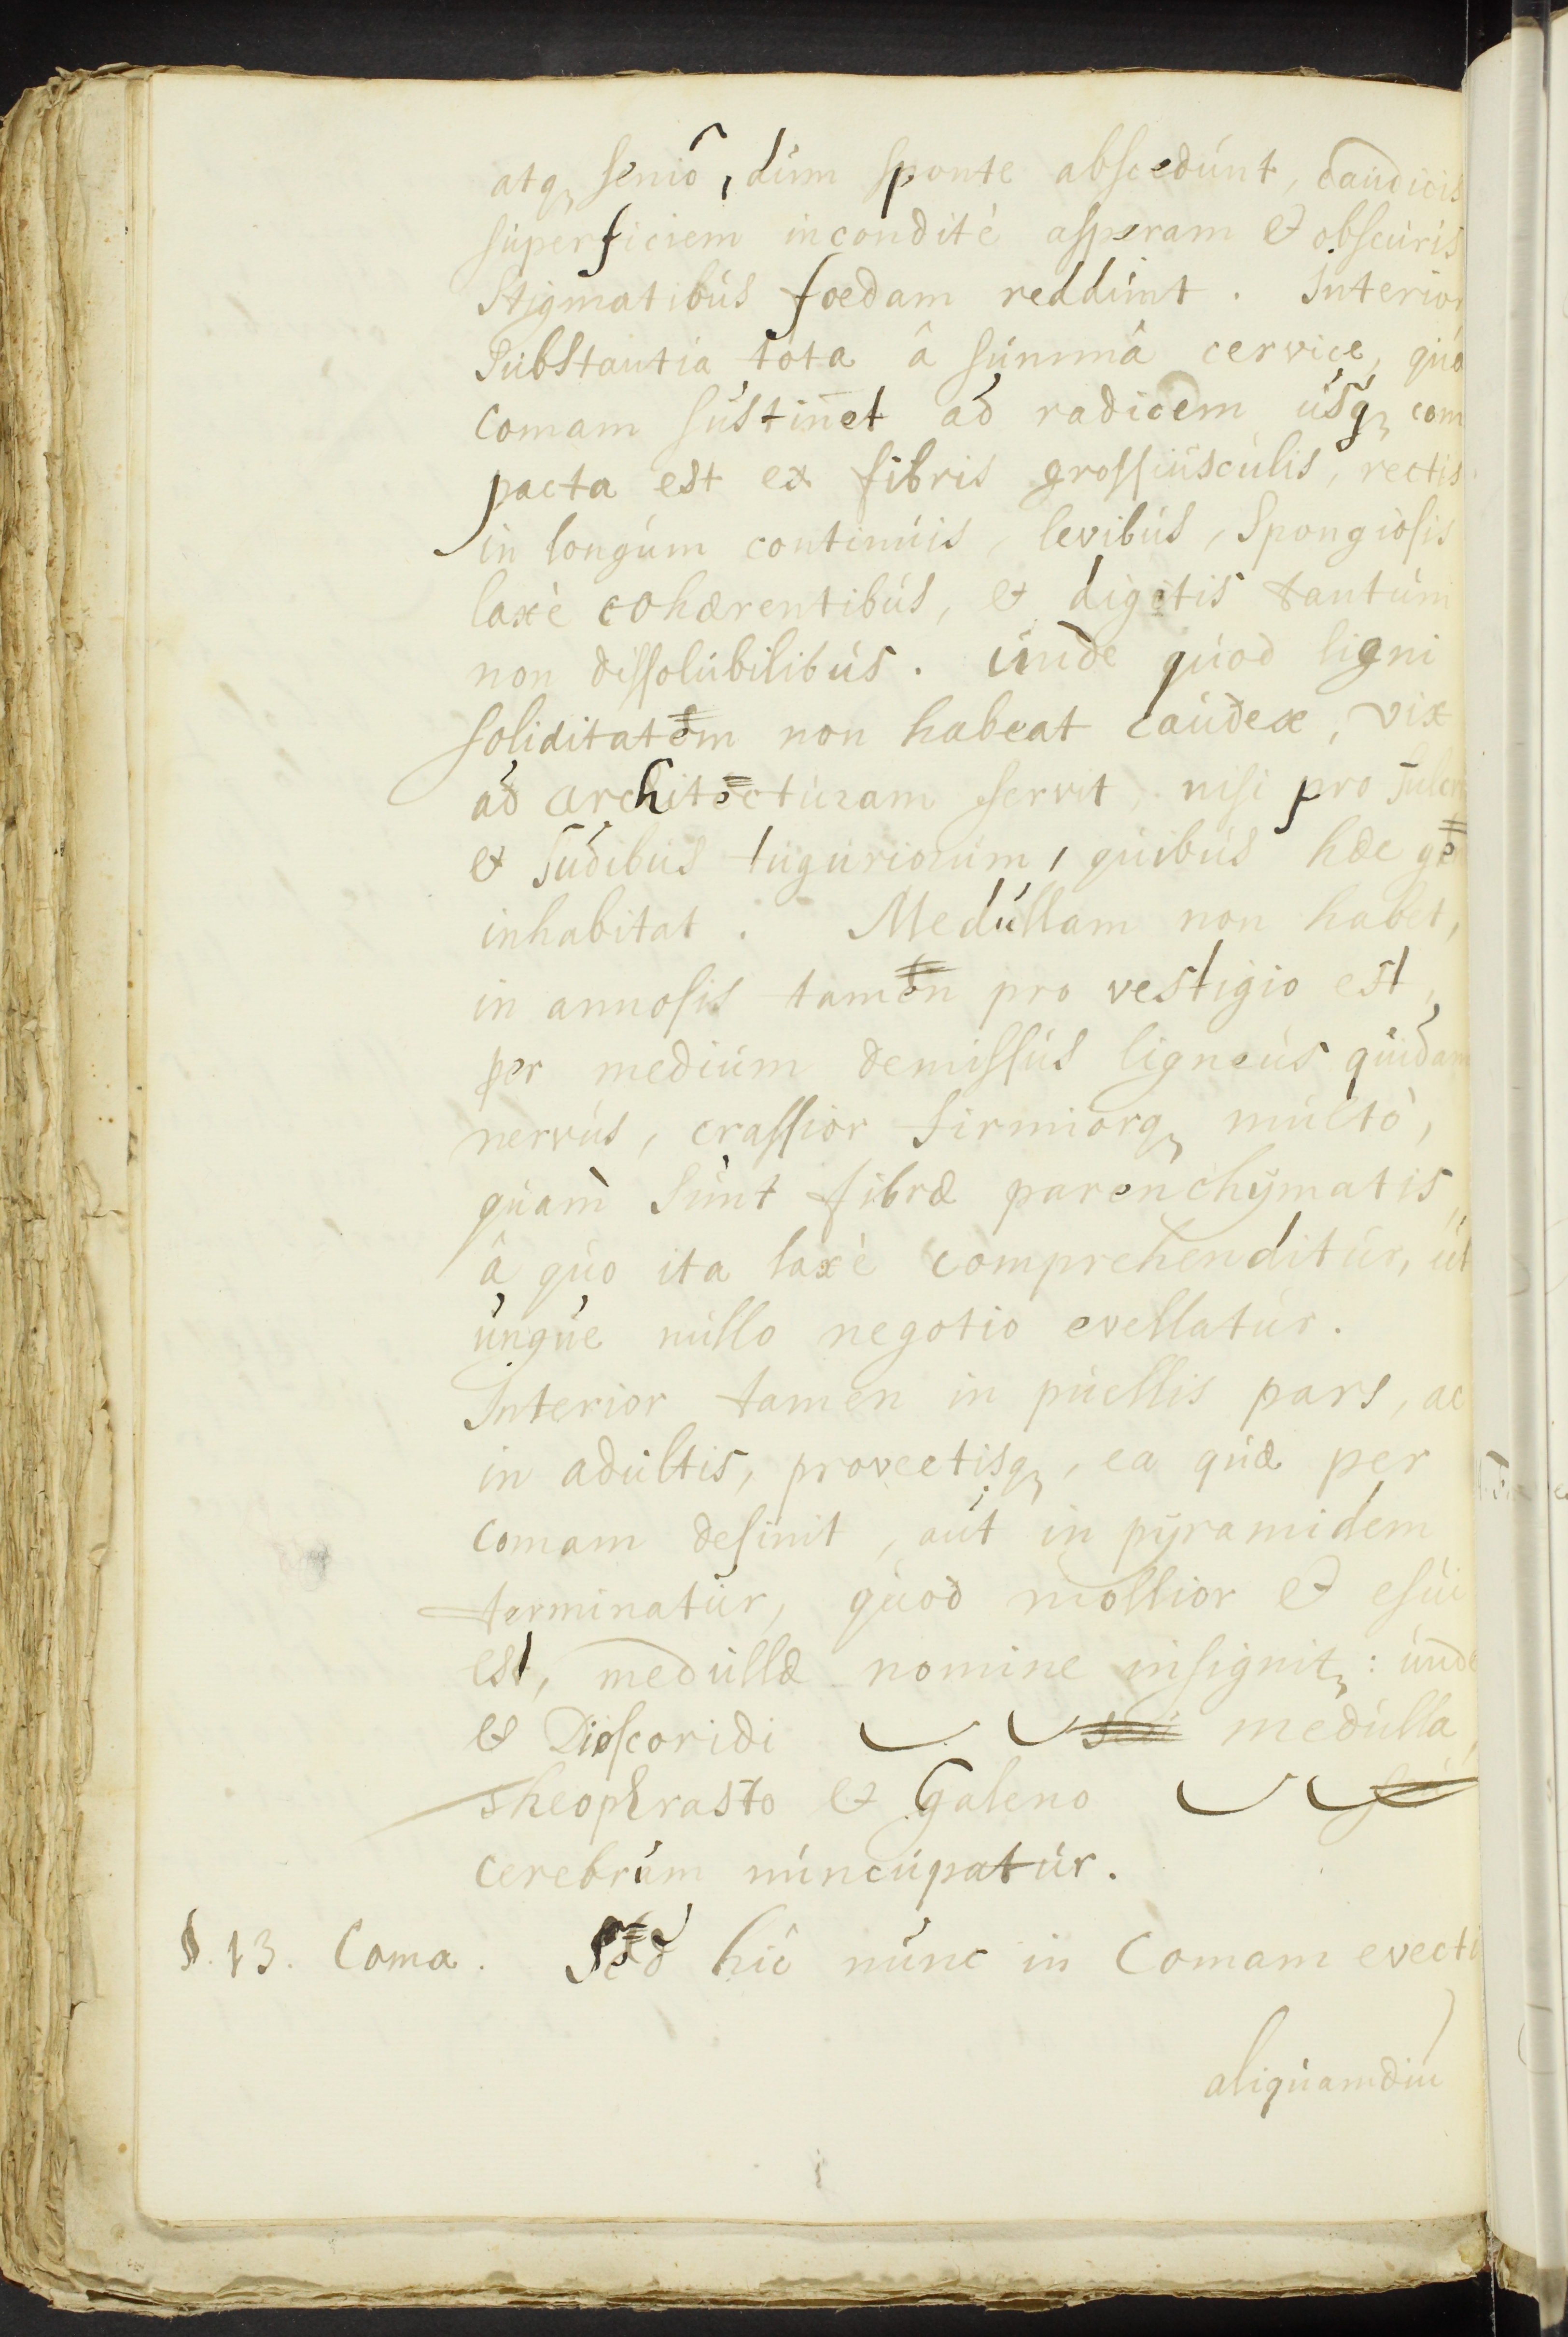 atq senio, dum sponte abscedunt, caudicis
superficiem inconditè asperam & obscuris
Stigmatibus foedam reddunt. Interior
Substantia tota â summâ cervice, quâ
comam sustinet ad radicem usq com
pacta est ex fibris grossiusculis, rectis
in longum continuis, levibus, Spongiosis
laxè cohærentibus, & digitis tantùm
non dissolubilibus. Unde quod ligni
soliditatem non habeat caudex, vix
ad architecturam servit, nisi pro fulcr
& sudibus tuguriorum, quibus hæc ge
inhabitat. Medullam non habet,
in annosis tamen pro vestigio est,
per medium demissus ligneus quidam
nervus, crassior firmiorq multò,
quam sunt fibræ parenchÿmatis,
â quo ita laxè comprehenditur, ut
ungue nullo negotio evellatur.
Interior tamen in puellis pars, ac
in adultis, provectisq, ea quæ per
comam desinit, aut in pÿramidem
terminatur, quod mollior & esui
est, medullæ nomine insignit: unde
& Dioscoridi medulla,
Theophrasto & Galeno
cerebrum nuncupatur.
§. 13. Coma. Sed hîc nunc in Comam evecti
aliquamdiu